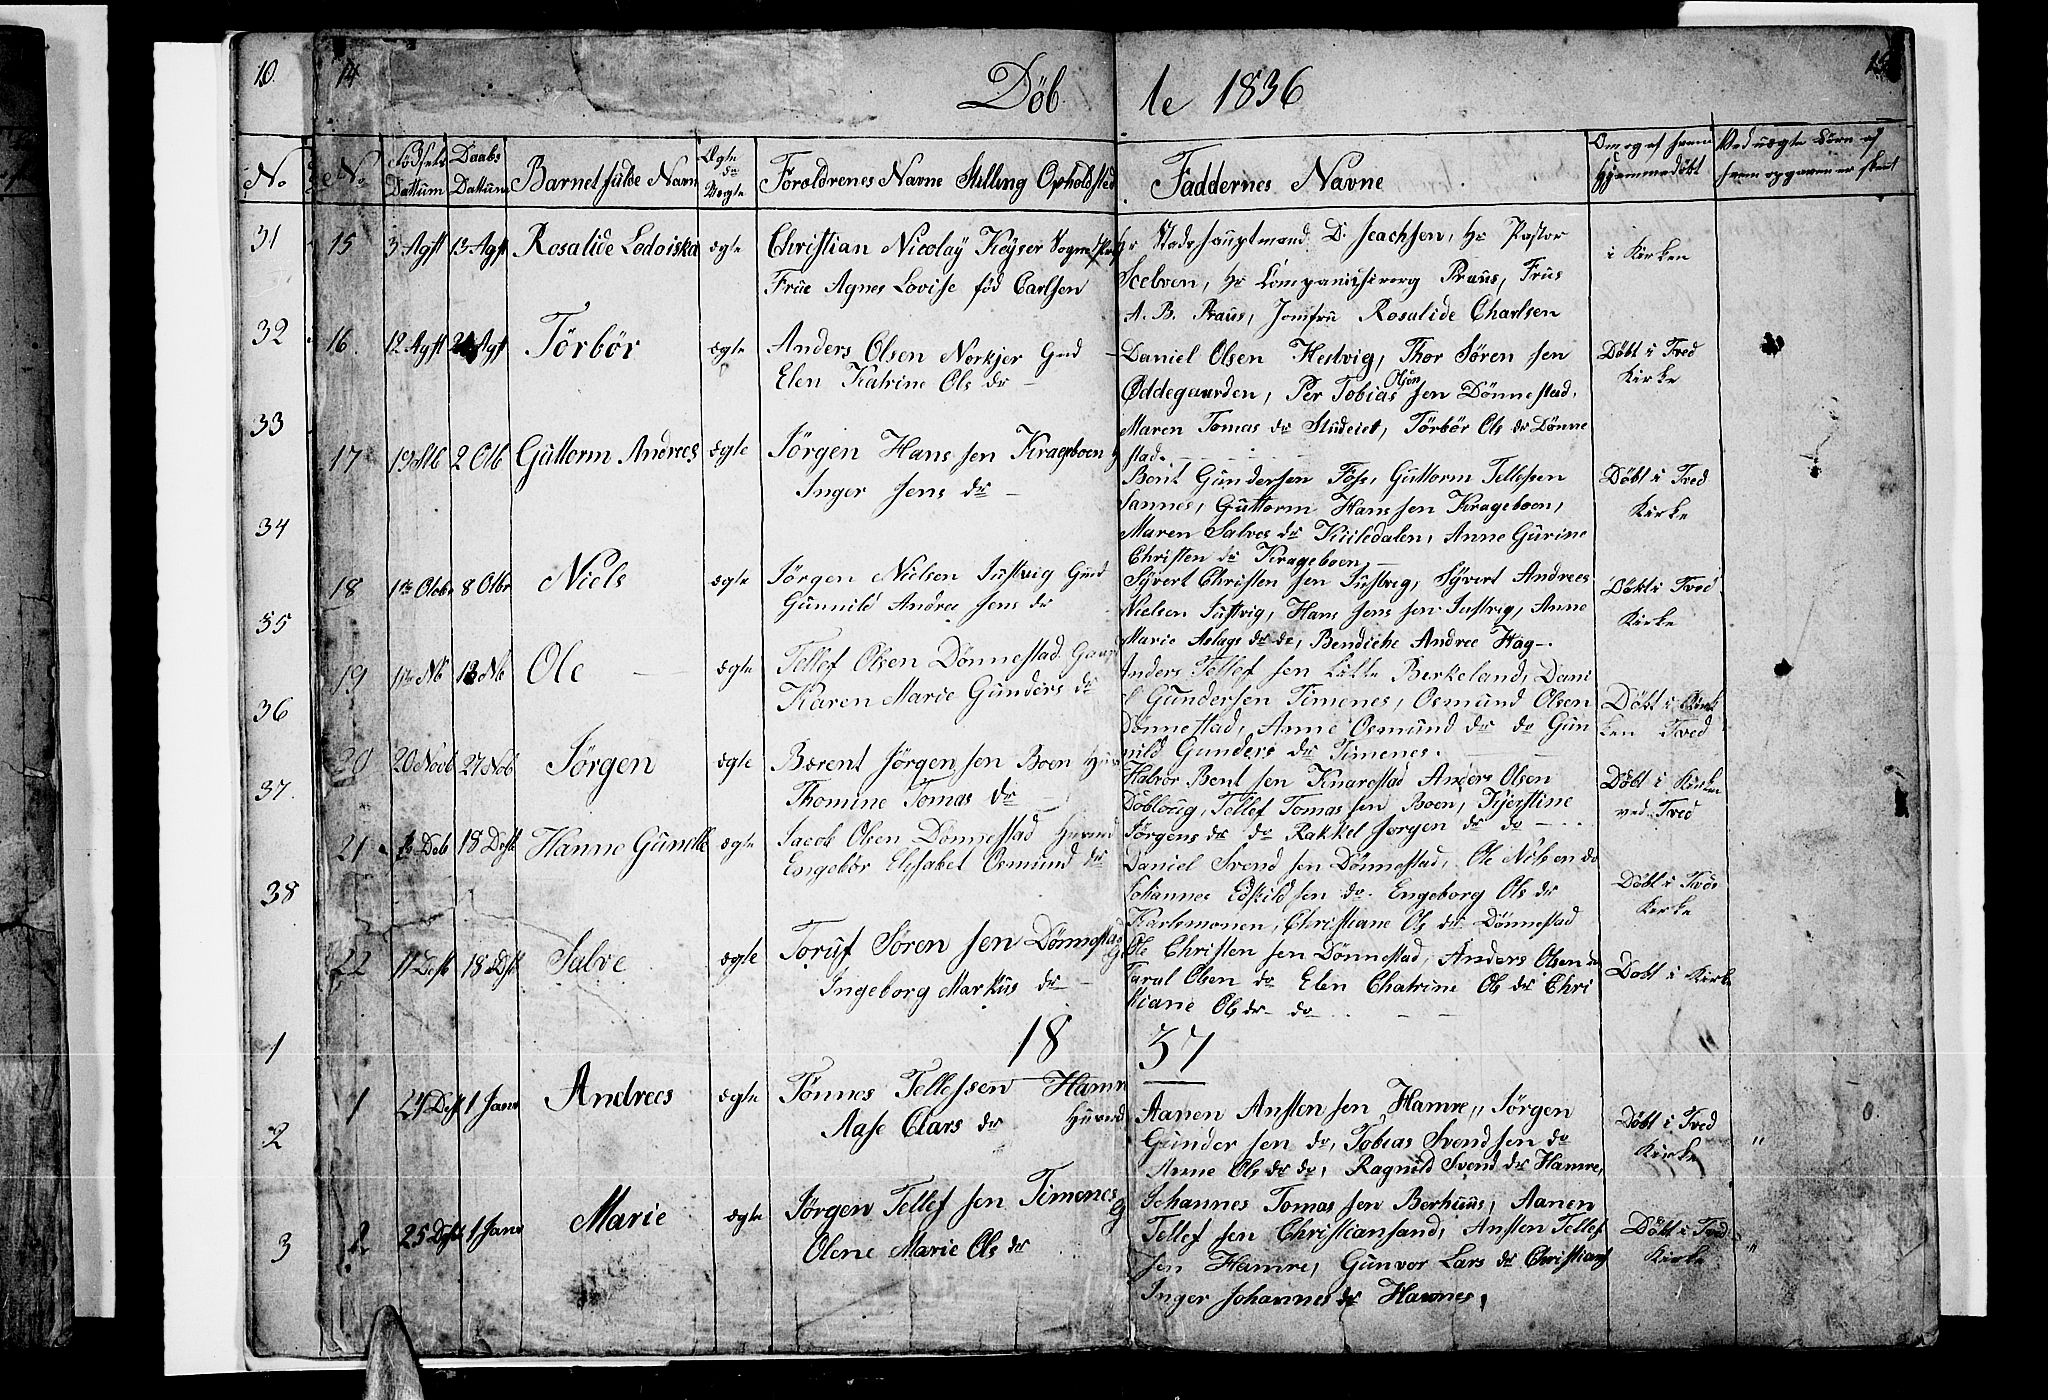 10 14
Döbte 1836
No. No. Födsels Dattum Daabs Dattum Barnet fulde Navn Ægte da Uægte Forældrenes Navne Stilling Opholdsted Faddernes Navne Om og af hvem Hjemmedöbt Ved uægte Börn af
31 15 3 Agst 13 Agst Rosalide Lodoiska ægte Christian Nicolaÿ Keÿser Sogne
Frue Agnes Lovise föd Carlsen
Hr Stadshauptmand D. Isachsen, Hr Pastor
Hr Companichirurg Praus, Frue
A. B. Praus, Jomfru Rosalide Charlsen
i Kirken
32 16 12 Agst Agst Törbör ægte Anders Olsen Norkjer Grd
Elen Katrine Ols dr
Daniel Olsen Hestvig, Thor Sören sen
Öddegaarden, Per Tobias sen Dönnestad,
Maren Tomas dr Studeiet, Törbör Ols dr Dönne
stad.
Döbt i Tved
Kirke
33 17 2 Otb Guttorm Andrees ægte Jörgen Hans sen Krageboen
Inger Jens dr
Berit Gundersen Foss, Guttorm Tellefsen
Sannes, Guttorm Hans sen Krageboen,
Maren Salves dr Kuiledalen, Anne Gurine
Christen dr Krageboen
Döbt i Tved
Kirke
34 18 1te Otobr 8 Otbr Niels ægte Jörgen Nielsen Justvig Grd
Gunnild Andrea Jens dr
Sÿvert Christen sen Justvig, Sÿvert Andrees
Nielsen Justvig, Hans Jens sen Justvig, Anne
Marie Aslags dr do, Bendicte Andree Hag
Döbt i Tved
Kirke
35 19 Nb 13 Nb Ole ægte Tellef Olsen Dönnestad
Karen Marie Gunders dr
Anders Tellef sen Lille Berkeland, Dani
l Gundersen Timenes, Osmund Olsen
Dönnestad, Anne Osmund dr do Gun
nild Gunders dr Timenes.
Döbt i Kirk
ken Tved
36 20 20 Novb 27 Nob Jörgen ægte Bærent Jörgen sen Boen
Thomine Tomas dr
Halvor Bent sen Knarestad Anders Olsen
Döbloug, Tellef Tomas sen Boen, Kjerstine
Jörgens dr do Rakkel Jorgen dr do
Döbt i Kirken
ved Tved
37. 21 Deb 18 Desb Hanne Gunelle ægte Jacob Olsen Dönnestad Huusmd
Engebör Elisabet Osmund dr
Daniel Svend sen Dönnestad, Ole Nilsen do
Johannes Edskild sen do. Engeborg Ols dr
Karlsmonen, Christiane Ols dr Dönnestad
Döbt i Tved
Kirke
38 22 11 Desb 18 Dsb Salve ægte Toruf Sören sen Dönnestad
Ingeborg Markus dr
Ole Christen sen Dönnestad, Anders Olsen do
Taral Olsen do Elen Chatrine Ols dr Chri
stiane Ols dr do
Döbt i Kirke
1837
1 1 24 Desb 1 Janr Andrees ægte Tönnes Tellefsen Hamre
Aase Clars dr Huusmd
Aanen Ansten sen Hamre, Jörgen
Gunder sen do, Tobias Svend sen do
Anne Ols dr do, Ragnild Svend dr Hamre,
Döbt i Tved
Kirke "
2 2 25 Desb 1 Janr Marie ægte Jörgen Tellef sen Timenes
Olene Marie Ols dr
Johannes Tomas sen Berhuus, Aanen
Tellef sen Christiansand, Ansten Tellef
sen Hamre, Gunvor Lars dr Christians
Inger Johannes dr Hamnes,
Döbt i Tved
Kirke "
3